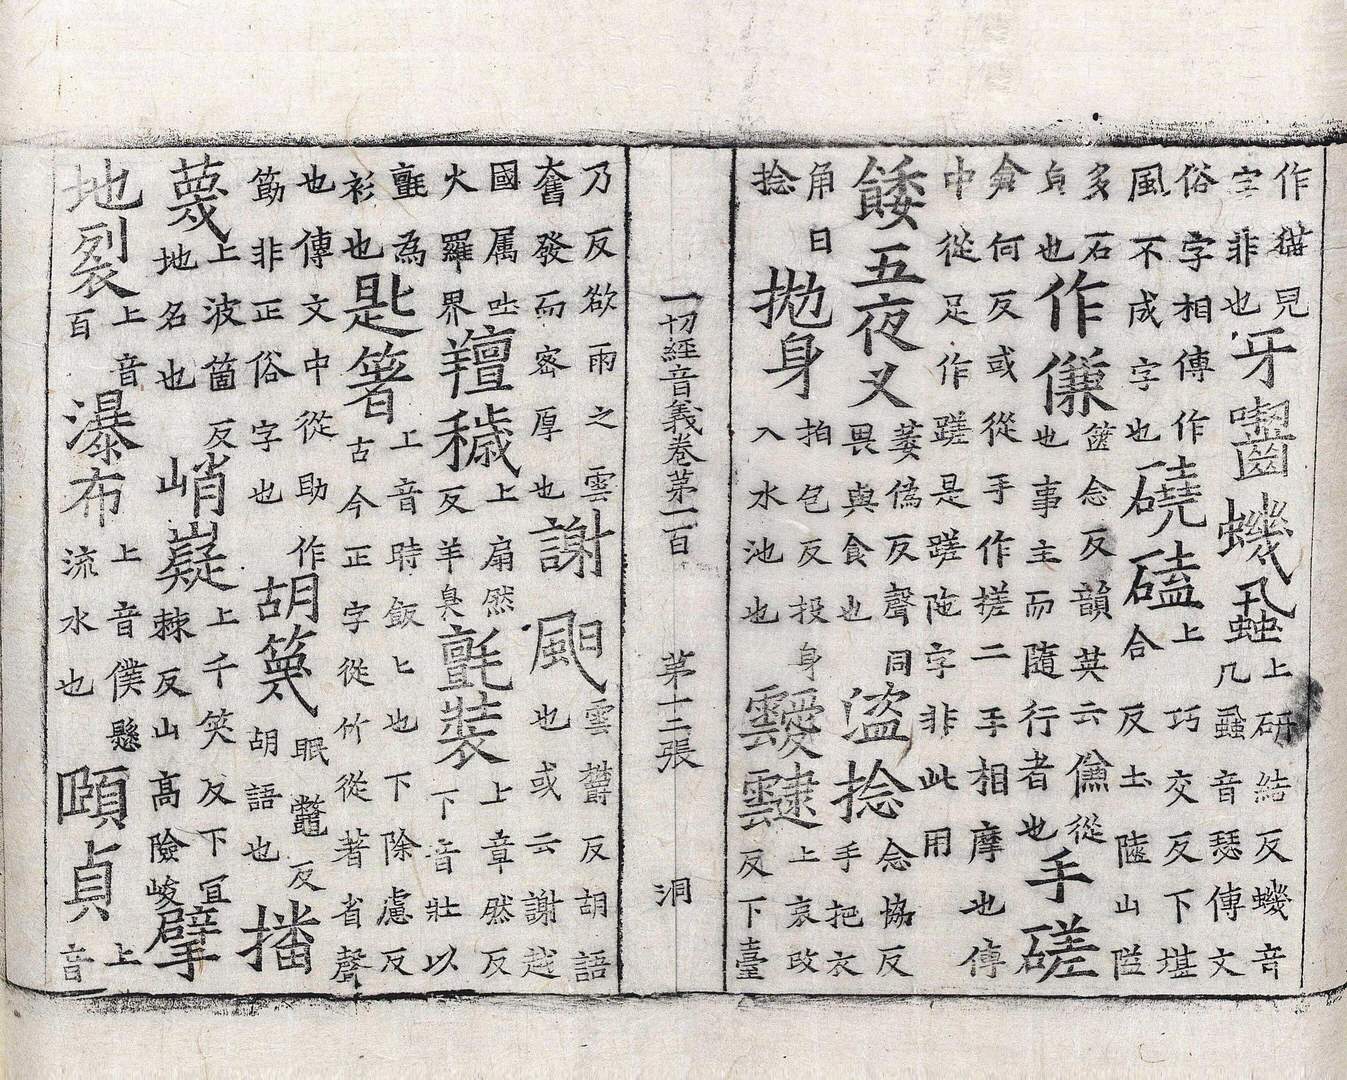 作猫兒字非也牙齧蟣蝨上研結反蟣音几蝨音瑟傳文
俗字相傳作風不成字也磽磕上巧交反下堪合反土陿山隘
多石皃也作傔篋念反韻英云傔從也事主而隨行者也手磋
倉何反或從手作搓二手相摩也傳中從足作蹉是蹉陁字非此用
餧五夜叉萎偽反聲同畏與食也盗捻念協反手把衣
角曰捻拋身拍包反投身入水池也靉靆上哀改反下臺
一切經音義卷第一百 第十二張 洞
乃反欲雨之雲奮發而密厚也謝䫻雲欝反胡語也或云謝越
國属吐火羅界羶穢上扇然反羊臭氈裝上章然反下音壯以
氈為衫也匙箸上音時飯匕也下除慮反古今正字從竹從著省聲
也傳文中從助作筯非正俗字也胡簚眠鼈反胡語也播
薎上波箇反地名也峭嶷上千笑反下冝棘反山高險峻擘
地裂上音百瀑布上音僕懸流水也頤貞上音